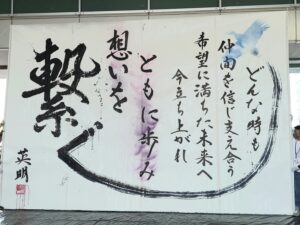 どんな時も
仲間を信じ支え合う
希望に満ちた未来へ
今立ち上がれ
ともに歩み
想いを
繋ぐ
英明